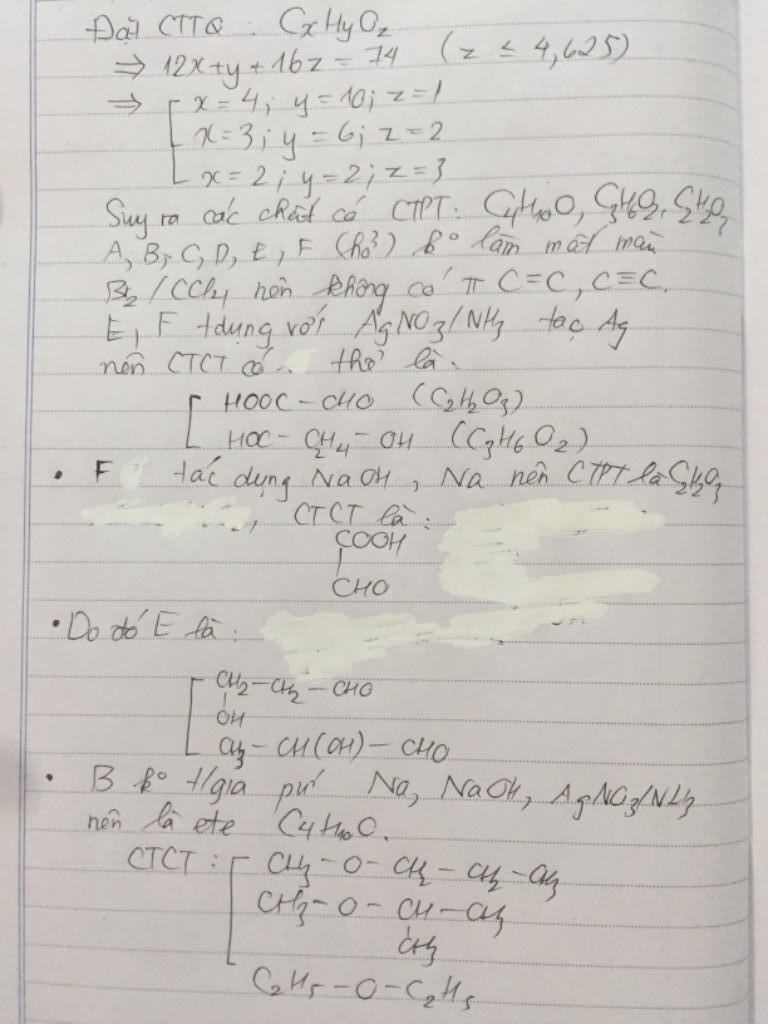 Đặt CTTQ : CxHyOz
⇒ 12x+y+16z = 74 (z ≤ 4,625)
⇒ [ x = 4; y = 10; z = 1
x = 3; y = 6; z = 2
x = 2; y = 2; z = 3
Suy ra các chất có CTPT: C4H10O, C3H6O2, C2H2O3
A, B, C, D, E, F (hở) ko làm mất màu
Br2/CCl4 nên không có π C=C, C≡C.
E, F tdụng với AgNO3/NH3 tạo Ag
nên CTCT có thể là:
[ HOOC – CHO (C2H2O3)
HOC – C2H4 – OH (C3H6O2)
• F tác dụng NaOH, Na nên CTPT là C2H2O3
, CTCT là:
COOH
|
CHO
• Do đó E là:
[ CH2 – CH2 – CHO
|
OH
CH3 – CH(OH) – CHO
• B ko t/gia pứ Na, NaOH, AgNO3/NH3
nên là ete C4H10O.
CTCT : [ CH3 – O – CH2 – CH2 – CH3
CH3 – O – CH – CH3
|
CH3
C2H5 – O – C2H5